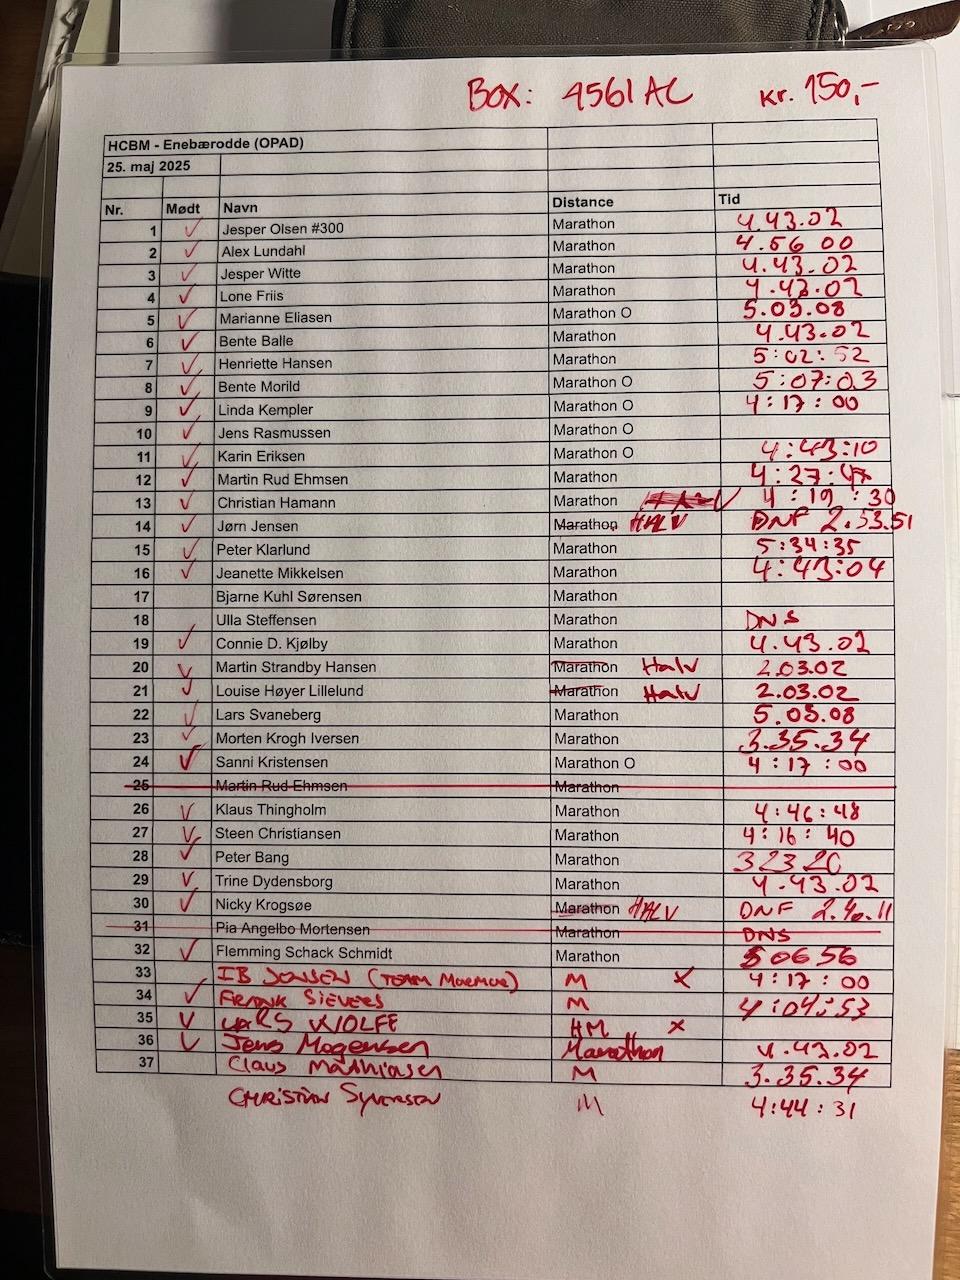 Box: 4561 AC Kr. 150,-
HCBM - Enebærodde (OPAD)
25. maj 2025
Nr. Mødt Navn Distance Tid
1 ✓ Jesper Olsen #300 Marathon 4.43.02
2 ✓ Alex Lundahl Marathon 4.56 00
3 ✓ Jesper Witte Marathon 4.43.02
4 ✓ Lone Friis Marathon 4.43.02
5 ✓ Marianne Eliasen Marathon O 5.03.08
6 ✓ Bente Balle Marathon 4.43.02
7 ✓ Henriette Hansen Marathon 5:02:52
8 ✓ Bente Morild Marathon O 5:07:03
9 ✓ Linda Kempler Marathon O 4:17:00
10 Jens Rasmussen Marathon O
11 ✓ Karin Eriksen Marathon O 4:43:10
12 ✓ Martin Rud Ehmsen Marathon 4:27:47
13 ✓ Christian Hamann Marathon 4:19:30
14 ✓ Jørn Jensen Marathon HALV DNF 2.53.51
15 ✓ Peter Klarlund Marathon 5:34:35
16 ✓ Jeanette Mikkelsen Marathon 4:43:04
17 Bjarne Kuhl Sørensen Marathon
18 Ulla Steffensen Marathon DNS
19 ✓ Connie D. Kjølby Marathon 4.43.02
20 ✓ Martin Strandby Hansen Marathon Halv 2.03.02
21 ✓ Louise Høyer Lillelund Marathon Halv 2.03.02
22 ✓ Lars Svaneberg Marathon 5.03.08
23 ✓ Morten Krogh Iversen Marathon 3.35.34
24 ✓ Sanni Kristensen Marathon O 4:17:00
25 Martin Rud Ehmsen Marathon
26 ✓ Klaus Thingholm Marathon 4:46:48
27 ✓ Steen Christiansen Marathon 4:16:40
28 ✓ Peter Bang Marathon 3 23 20
29 ✓ Trine Dydensborg Marathon 4.43.02
30 ✓ Nicky Krogsøe Marathon HALV DNF 2.40.11
31 Pia Angelbo Mortensen Marathon DNS
32 ✓ Flemming Schack Schmidt Marathon 5 06 56
33 IB JENSEN (TEAM MORMOR) M x 4:17:00
34 ✓ FRANK SIEVERS M 4:04:53
35 ✓ LARS WOLFE HM x
36 ✓ Jens Mogensen Marathon 4.43.02
37 Claus Mathiasen M 3.35.34
CHRISTIAN SYVERSEN M 4:44:31